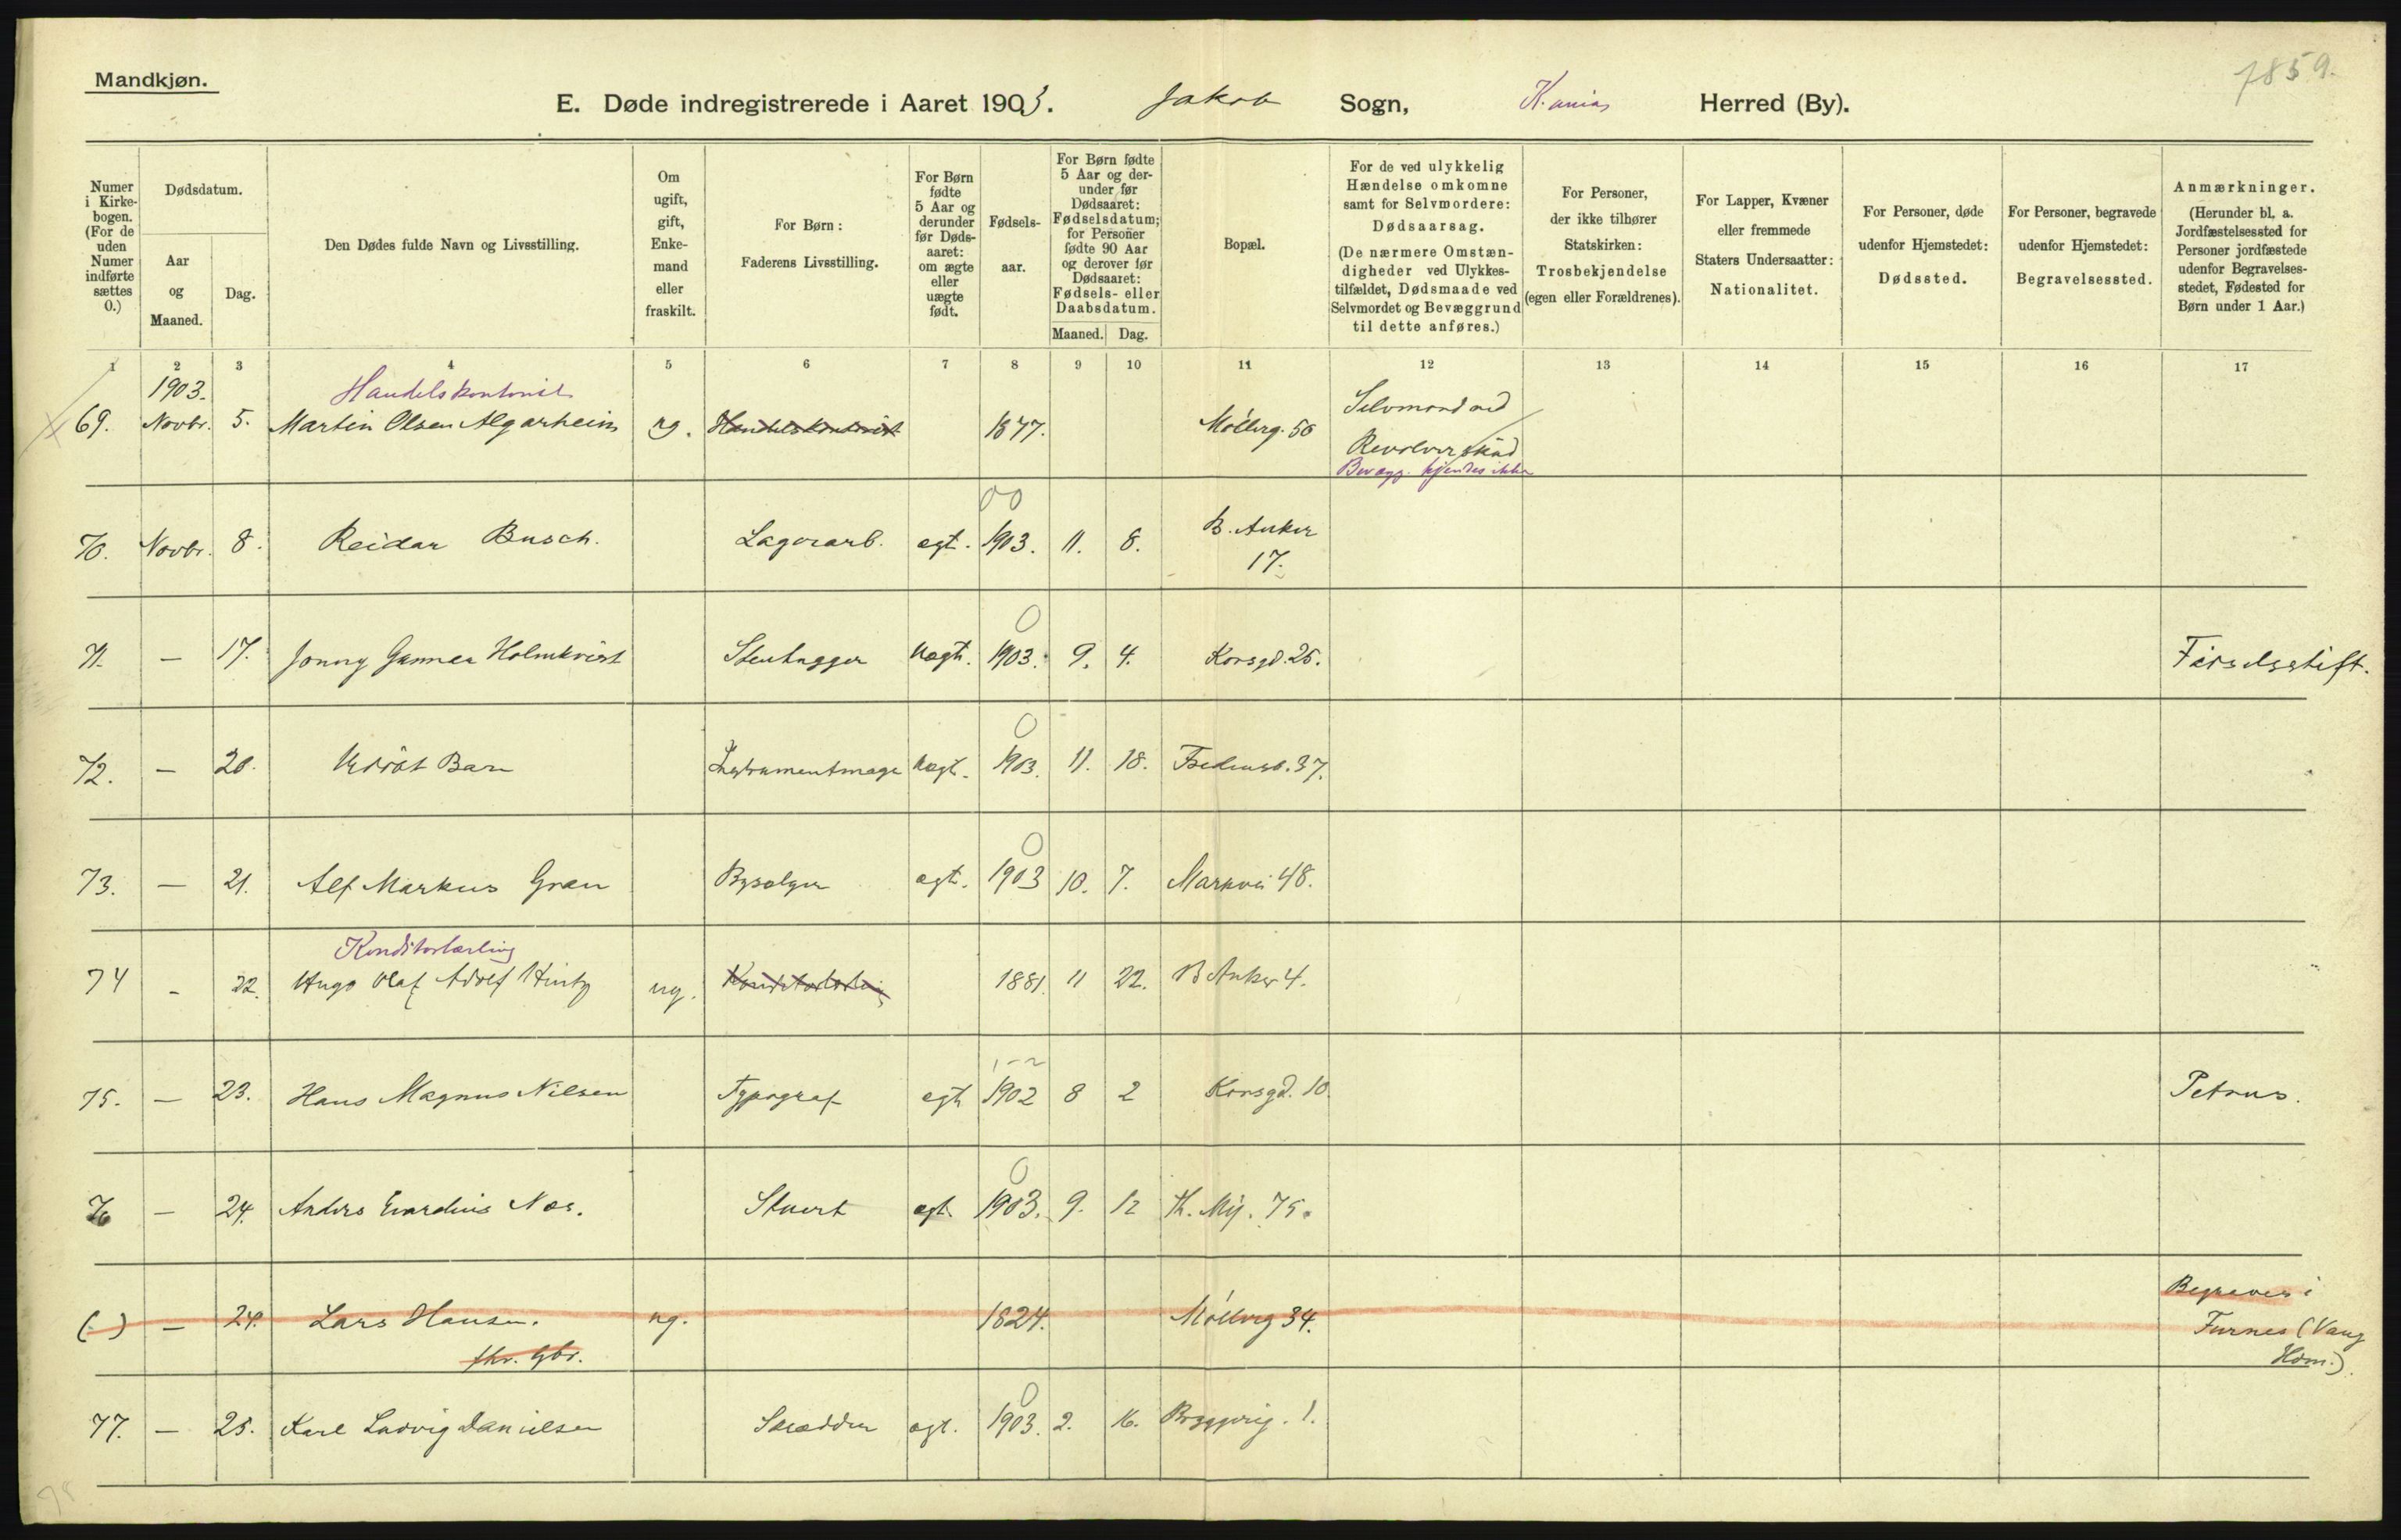 Mandkjøn.
7859.
E. Døde indregistrerede i Aaret 1903. Jakob Sogn, K.ania Herred (By).
Numer i Kirkebogen. (For de uden Numer indførte sættes 0.)
Dødsdatum.
Aar og Maaned.
Dag.
Den Dødes fulde Navn og Livsstilling.
Om ugift, gift, Enkemand eller fraskilt.
For Børn: Faderens Livsstilling.
For Børn fødte 5 Aar og derunder før Dødsaaret: om ægte eller uægte født.
Fødselsaar.
For Børn fødte 5 Aar og derunder før Dødsaaret: Fødselsdatum; for Personer fødte 90 Aar og derover før Dødsaaret: Fødsels- eller Daabsdatum.
Maaned. Dag.
Bopæl.
For de ved ulykkelig Hændelse omkomne samt for Selvmordere: Dødsaarsag. (De nærmere Omstændigheder ved Ulykkestilfældet, Dødsmaade ved Selvmordet og Bevæggrund til dette anføres.)
For Personer, der ikke tilhører Statskirken: Trosbekjendelse (egen eller Forældrenes).
For Lapper, Kvæner eller fremmede Staters Undersaatter: Nationalitet.
For Personer, døde udenfor Hjemstedet: Dødssted.
For Personer, begravede udenfor Hjemstedet: Begravelsessted.
Anmærkninger. (Herunder bl. a. Jordfæstelsessted for Personer jordfæstede udenfor Begravelsesstedet, Fødested for Børn under 1 Aar.)
1 2 3 4 5 6 7 8 9 10 11 12 13 14 15 16 17
1903.
Handelskontorist
69. Novbr. 5. Martin Olsen Algarheim ug. Handelskontorist 1877. Møllerg. 50 Selvmord ved
Revolverskud
Bevægg. kjendes ikke
70. Novbr. 8. Reidar Busch. Lagerarb. ægt. 1903. 11. 8. B. Anker
17.
71. — 17. Jonny Gunnar Holmkvist Stenhugger uægt. 1903. 9. 4. Korsgd. 25. Fødselsstift.
72. — 20. Udøbt Barn Instrumentmager uægt. 1903. 11. 18. Fredensb. 37.
73. — 21. Alf Markus Gran Bysælger ægt. 1903 10. 7. Markvei 48.
Konditorlærling
74 - 22. Hugo Olaf Adolf Hintz ug. Konditorlærling 1881. 11 22. B Anker 4.
75. — 23. Hans Magnus Nilsen Typograf ægt 1902 8 2 Korsgd. 10. Petrus.
76 — 24. Anders Evardius Næs. Stuert ægt. 1903. 9. 12 Th. Mij. 75.
(-) — 24. Lars Hansen. ug. 1824. Møllerg 34. Begraves i
fhv. Gbr. Furnes (Vang
Hdm.)
77. — 25. Karl Ludvig Danielsen Skrædder ægt. 1903. 2. 16. Bryggerig. 1.
78